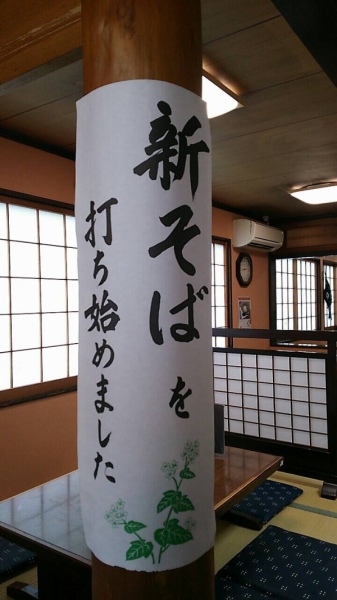 新そばを
打ち始めました